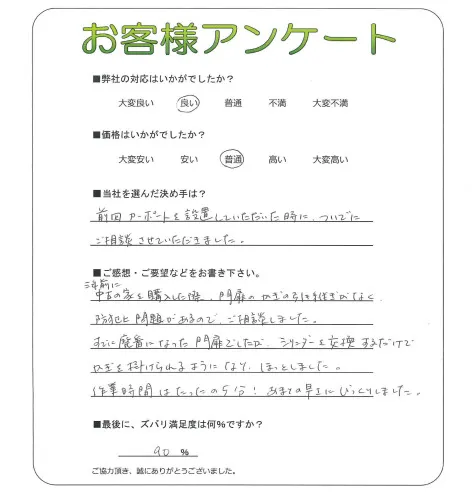 お客様アンケート
■弊社の対応はいかがでしたか？
大変良い 良い 普通 不満 大変不満
■価格はいかがでしたか？
大変安い 安い 普通 高い 大変高い
■当社を選んだ決め手は？
前回カーポートを設置していただいた時に、ついでに
ご相談させていただきました。
■ご感想・ご要望などをお書き下さい。
3年前に
中古の家を購入した際、門扉のかぎの引き継ぎがなく、
防犯上問題があるので、ご相談しました。
すでに廃番になった門扉でしたが、シリンダーを交換するだけで
かぎを掛けられるようになり、ほっとしました。
作業時間はたったの5分！あまりの早さにびっくりしました。
■最後に、ズバリ満足度は何%ですか？
90 %
ご協力頂き、誠にありがとうございました。